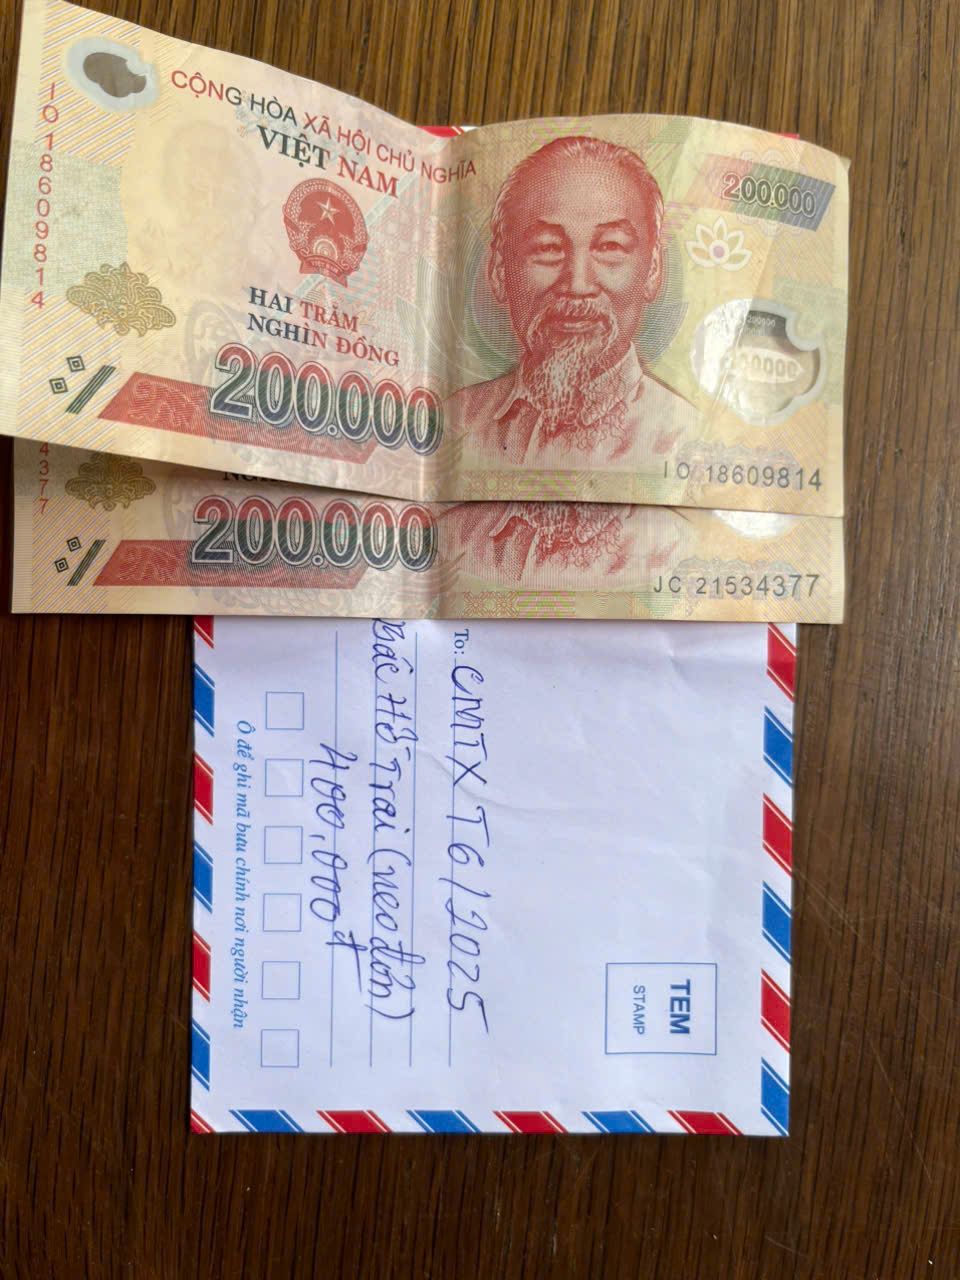 CỘNG HÒA XÃ HỘI CHỦ NGHĨA
VIỆT NAM
200.000
IO 18609814
HAI TRĂM
NGHÌN ĐỒNG
200.000
200000
IO 18609814
4377
200.000
JC 21534377
TEM
STAMP
To: CMTX T6/2025
Bác Hồ Trai (neo đơn)
400,000đ
Ô để ghi mã bưu chính nơi người nhận